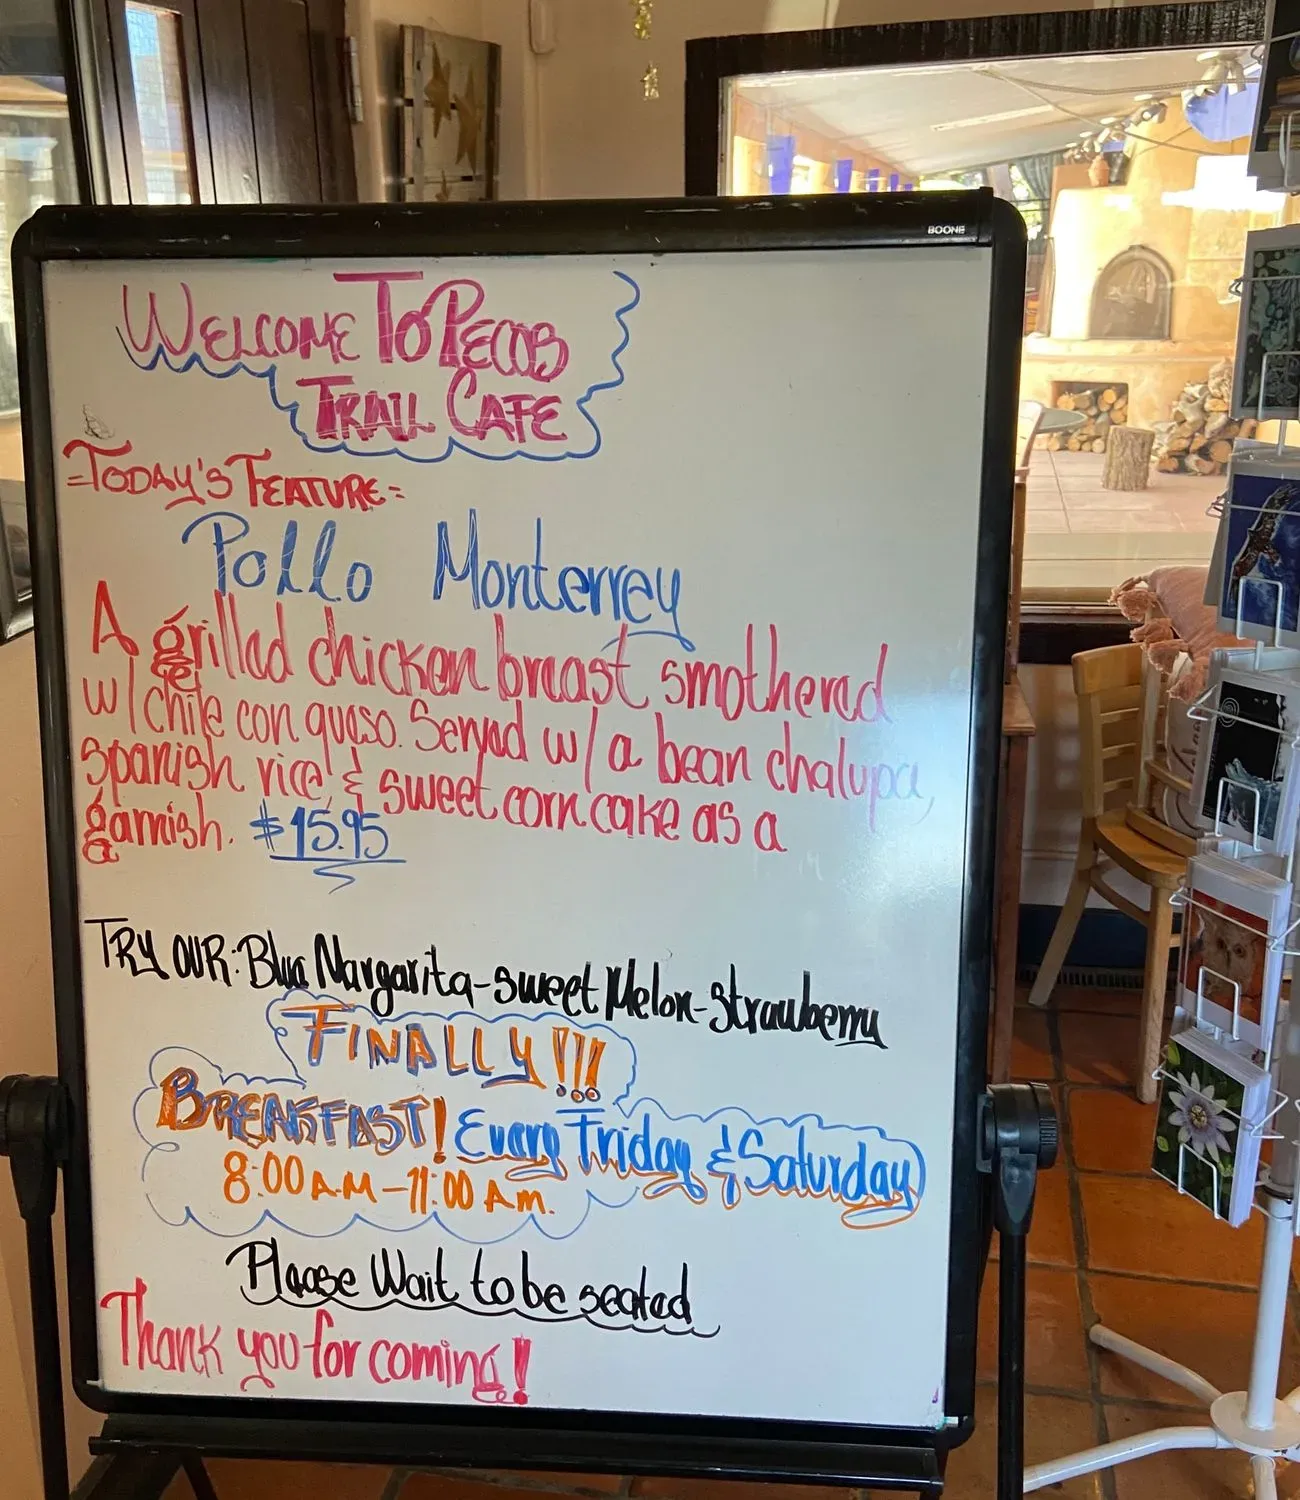 BOONE
WELCOME TO PECOS
TRAIL CAFE
=TODAY'S FEATURE=
Pollo Monterrey
A grilled chicken breast smothered
w/ chile con queso. Served w/ a bean chalupa,
spanish rice, & sweet corn cake as a
garnish. $15.95
TRY OUR: Blue Margarita-sweet Melon-strawberry
FINALLY!!!
BREAKFAST! Every Friday & Saturday
8:00 A.M-11:00 Am.
Please Wait to be seated
Thank you for coming!